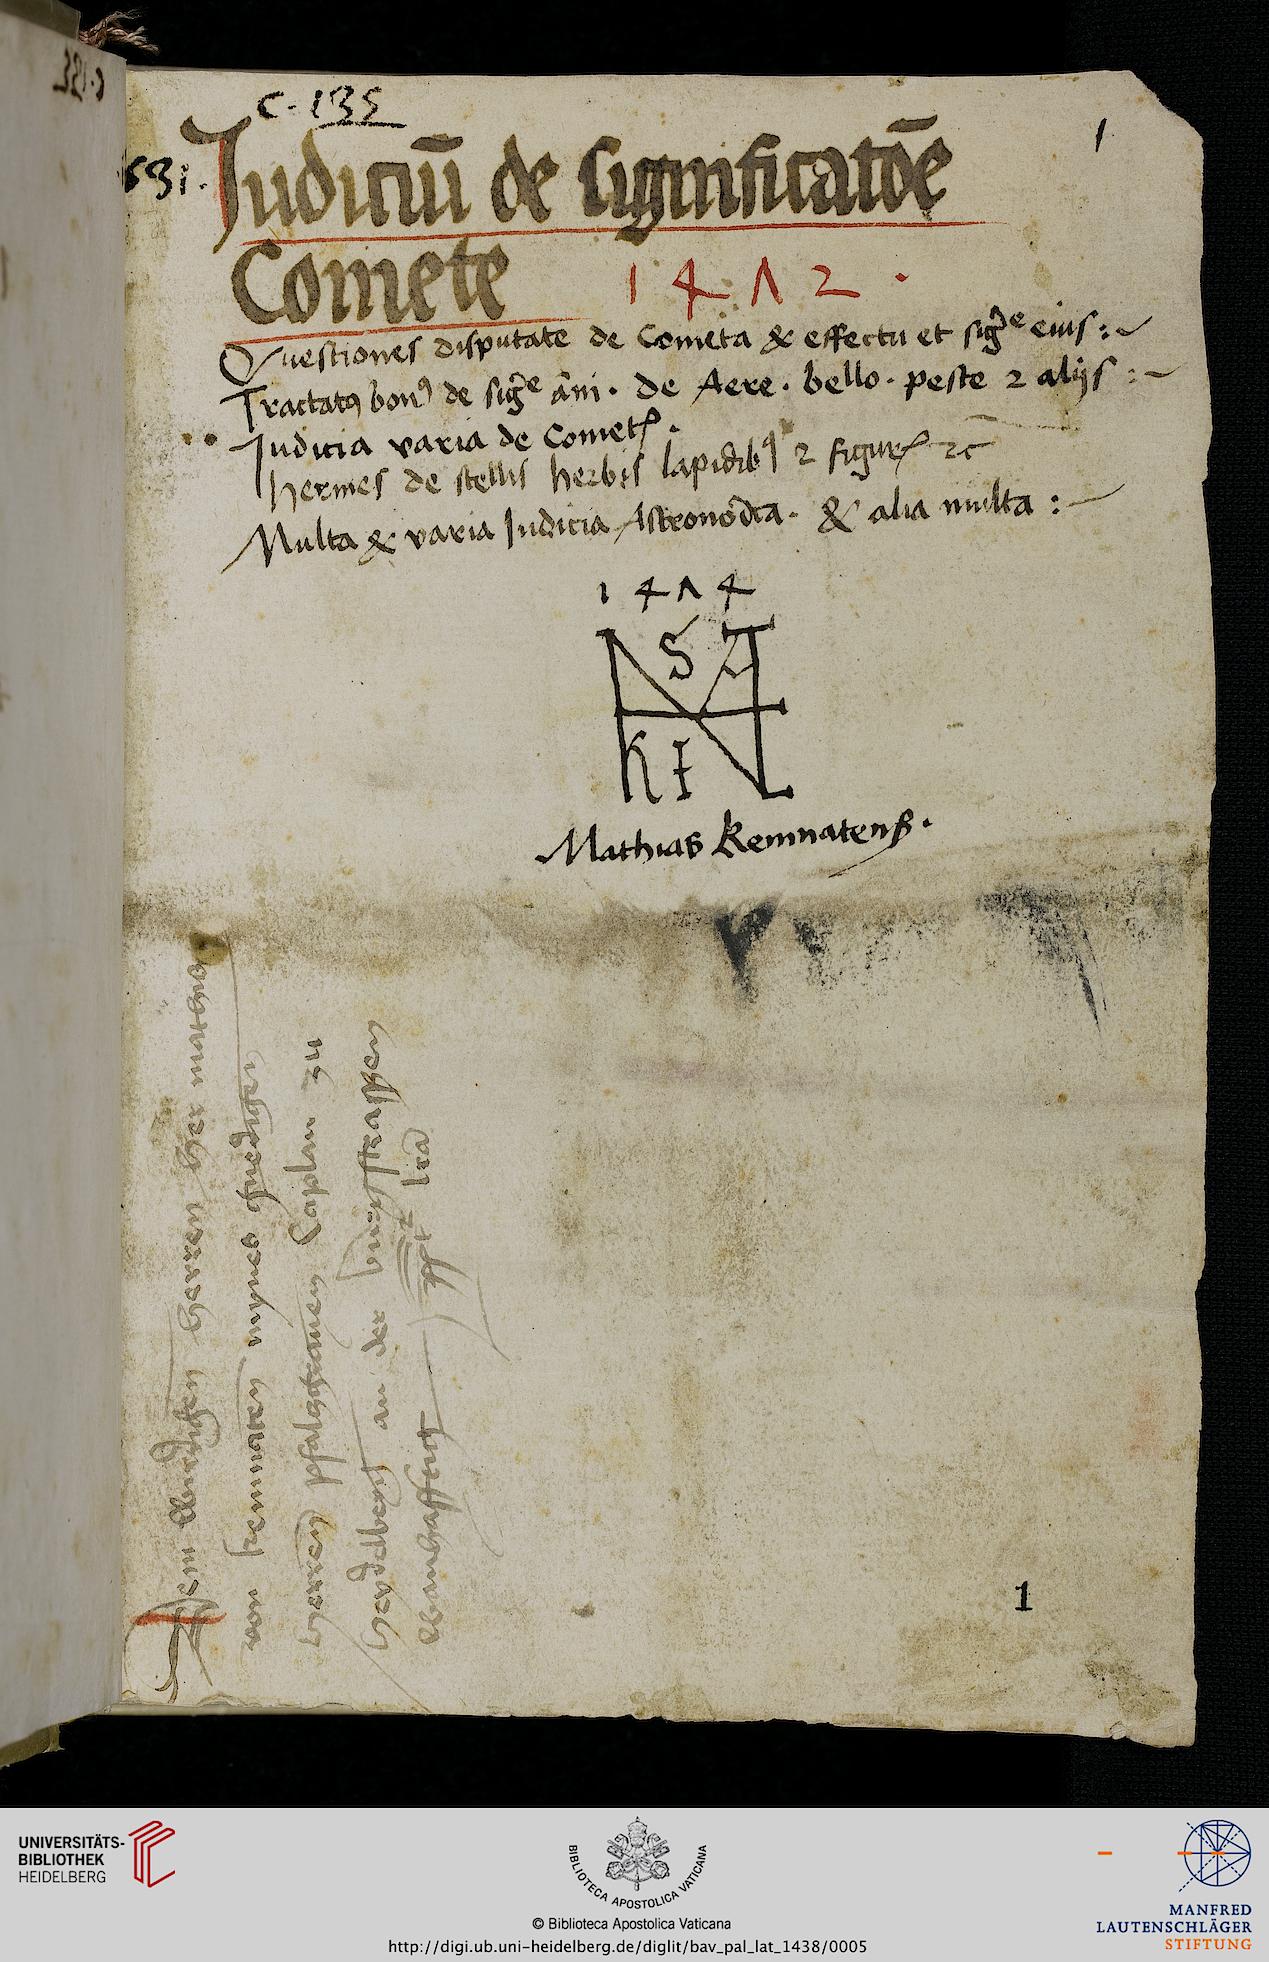 C. 135
1
631.
Judiciū de significatōe
Comete 1472.
Questiones disputate de Cometa & effectu et sigᷓe eius:
Tractatꝰ bonꝰ de sigᷓe āni. de Aere. bello. peste ⁊ alijs:
Judicia varia de Cometꝭ.
Hermes de stellis herbis lapidibꝰ ⁊ figurꝭ ⁊c̄
Multa & varia Judicia Astronōica. & alia multa:
1474
S
K
Mathias Kemnatenß.
herren her mathis
von kemnaten mynes gnedigen
herren pfalczgrauen Caplan zu
heydelberg an der
1
UNIVERSITÄTS-
BIBLIOTHEK
HEIDELBERG
BIBLIOTECA APOSTOLICA VATICANA
© Biblioteca Apostolica Vaticana
http://digi.ub.uni-heidelberg.de/diglit/bav_pal_lat_1438/0005
MANFRED
LAUTENSCHLÄGER
STIFTUNG